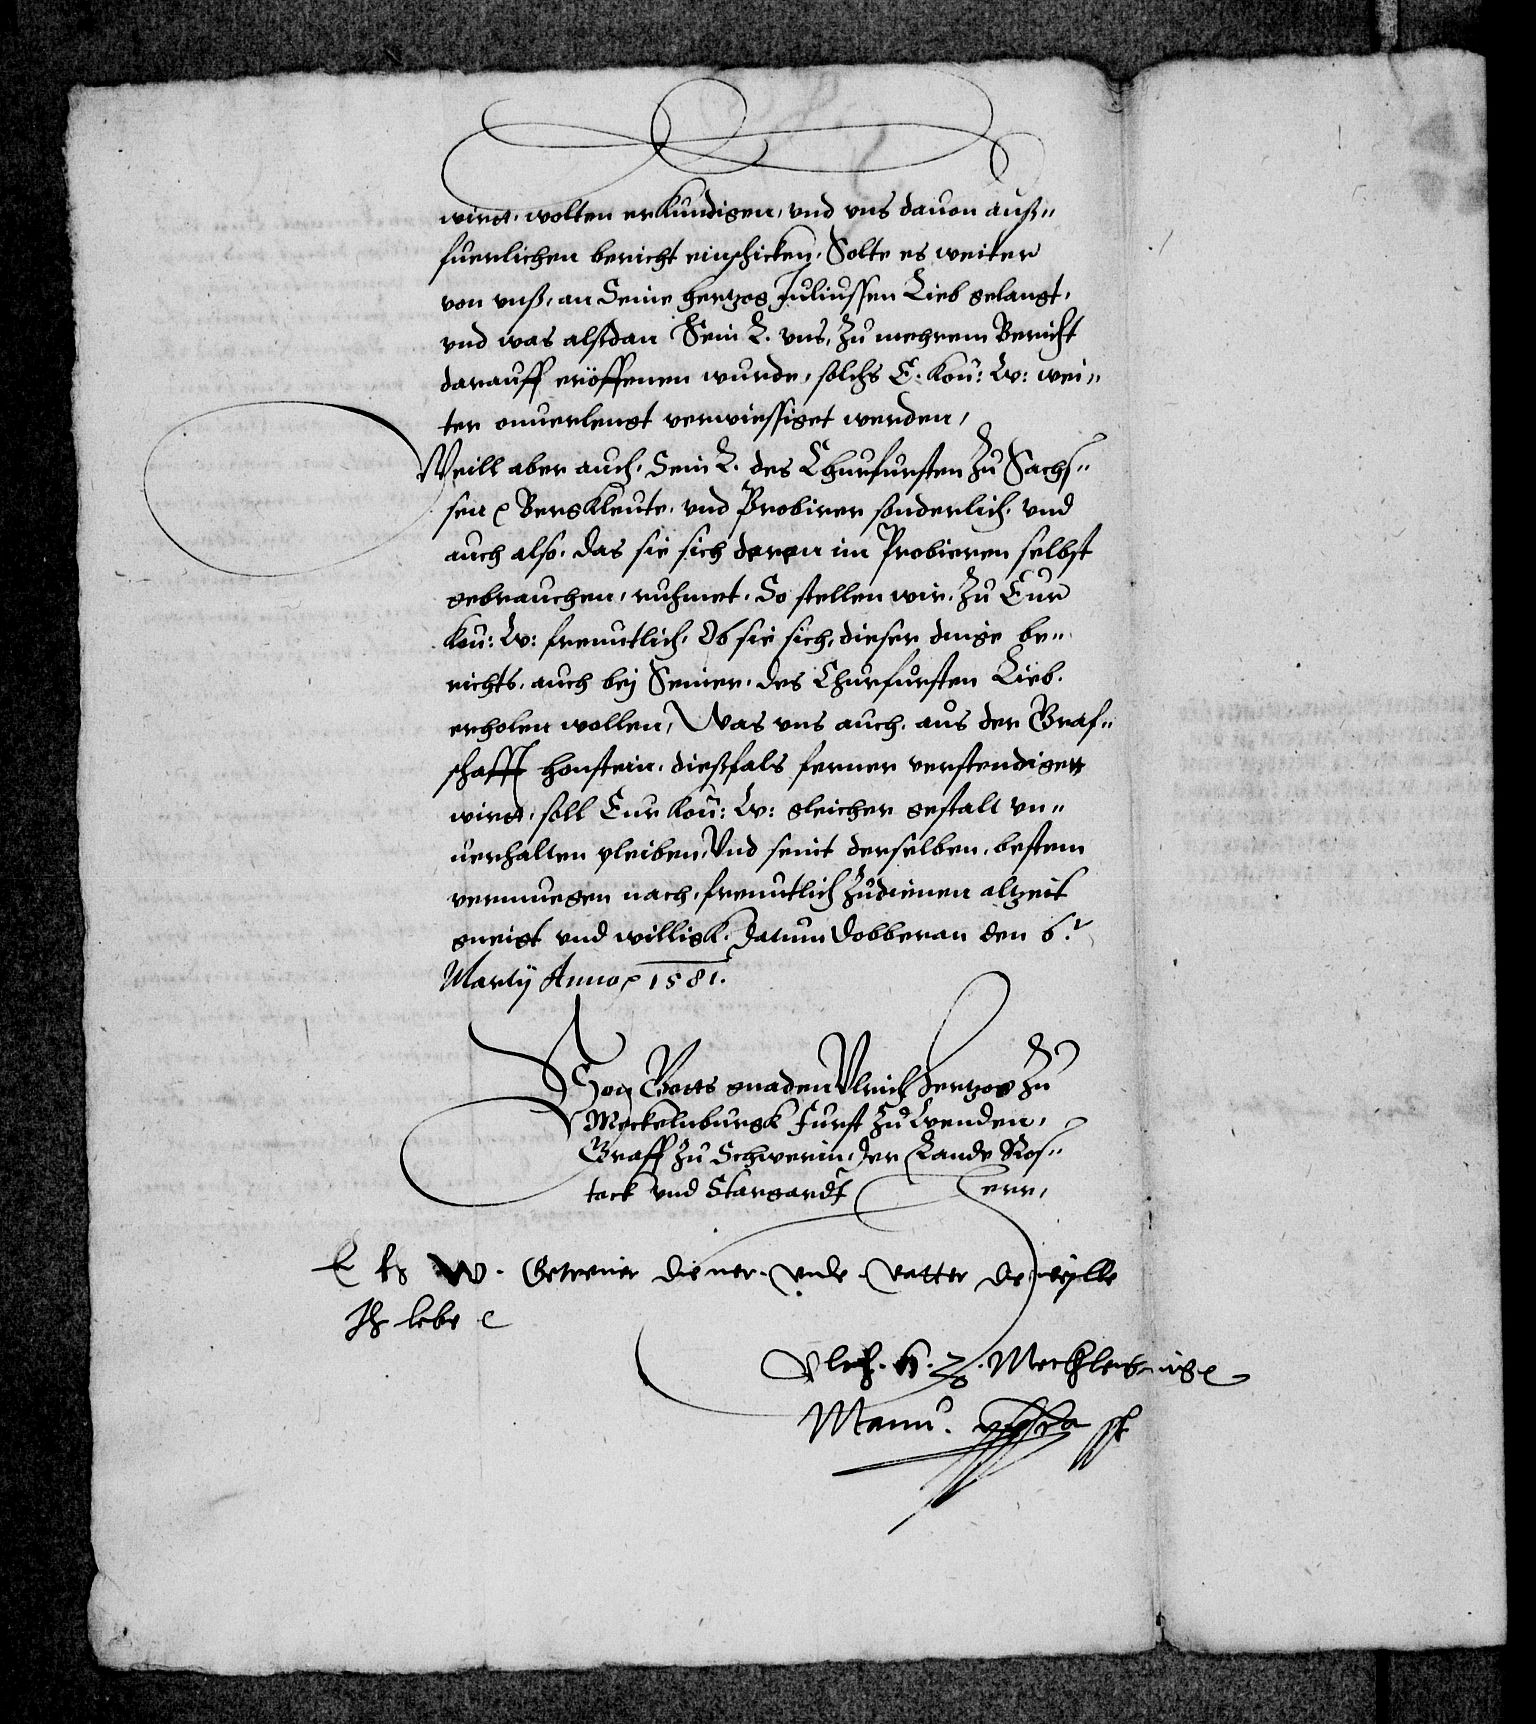 wirdt, wolten erkundigen, vnd vns dauon auß„
fuerlichen bericht einschicken, Solte es weiter
von vnß, an Seine hertzog Juliussen Lieb gelangt,
vnd was alßdan Sein L. vns, zu mehrem Bericht
darauff eröffenen wurde, solchs E. Kon: W: wei„
ter onuerlengt verwissiget werden,
Weill aber auch, Sein L. des Churfursten zu Sachs„
sen Bergkleute, vnd Probirer sonderlich, vnd
auch also, das sie sich deren im Probieren selbst
gebrauchen, ruhmet, So stellen wir, zu Eur
Kon: W: freuntlich, Ob sie sich, dieser dinge be„
richts, auch bej Seiner, des Churfursten Lieb.
erholen wollen, Was vns auch, aus der Graf„
schafft honstein, dießfals ferner verstendiget
wirdt, soll Eur Kon: W: gleicher gestalt vn„
uerhalten pleiben, Vnd seint derselben, bestem
vermuegen nach, freuntlich zudienen altzeit
gneigt vnd willigk, Datum Dobberan den 6.
Martij Anno 1581.
Von Gotts gnaden Vlrich Hertzog zu
Meckelnburgk Furst zu Wenden,
Graff zu Schwerin, der Lande Ros„
tock vnd Stargardt Herr,
E k W. Getreuer diener vnde vatter de wylle
Ich lebe
Vlrich. H. z. Mecklenburg
Manu. ppria sst